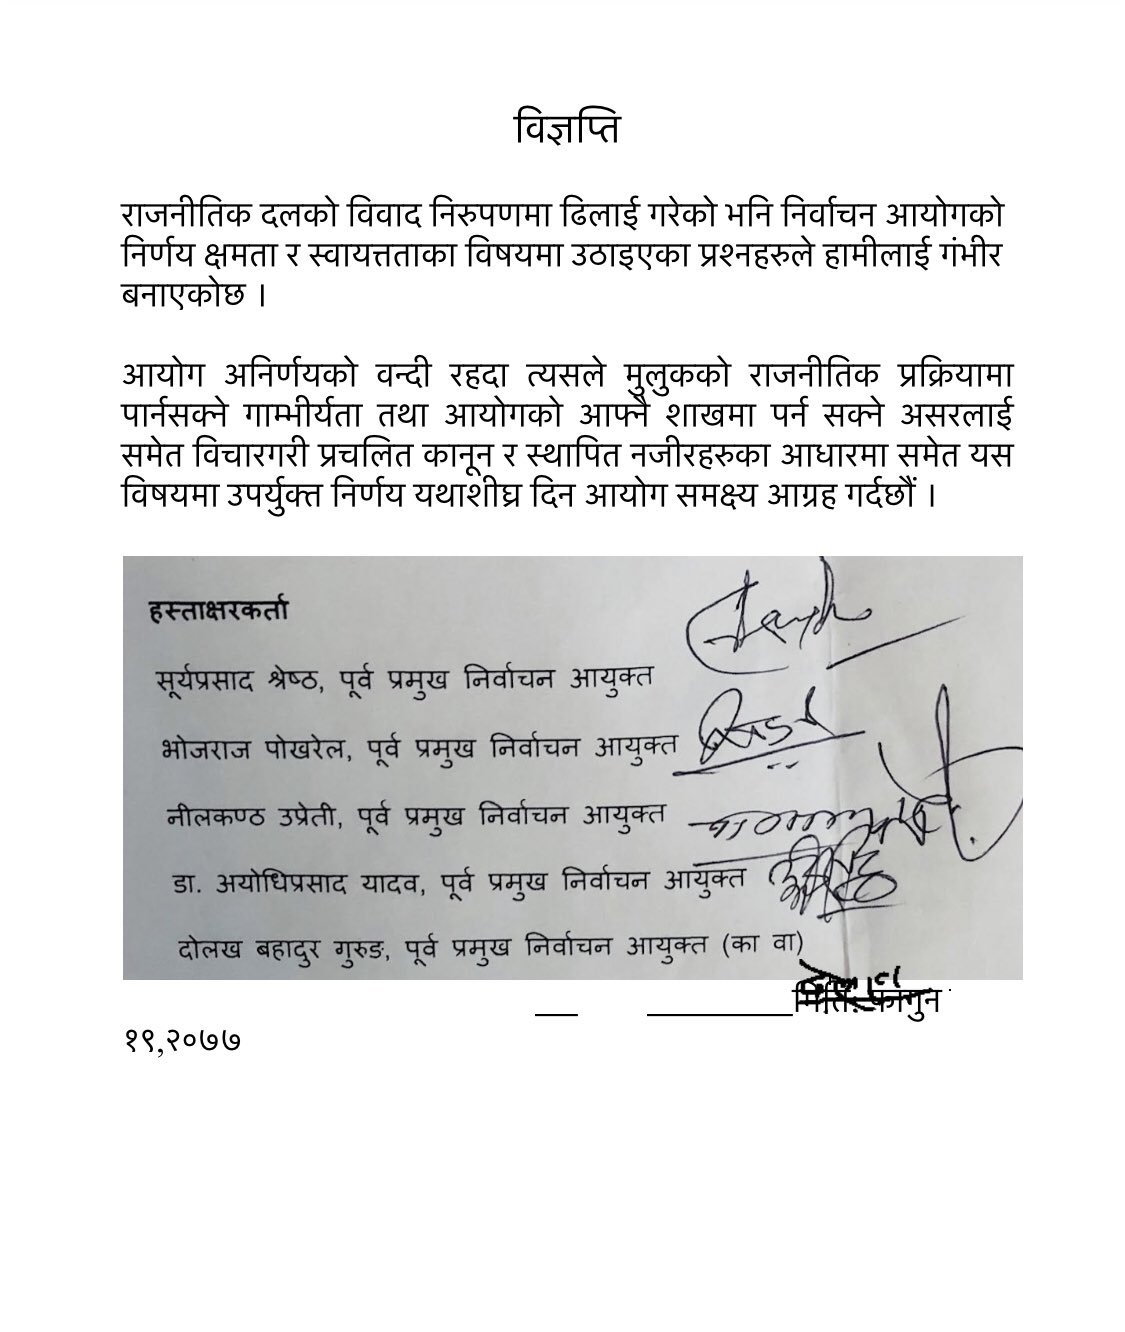 विज्ञप्ति
राजनीतिक दलको विवाद निरुपणमा ढिलाई गरेको भनि निर्वाचन आयोगको
निर्णय क्षमता र स्वायत्तताका विषयमा उठाइएका प्रश्नहरुले हामीलाई गंभीर
बनाएकोछ ।
आयोग अनिर्णयको वन्दी रहदा त्यसले मुलुकको राजनीतिक प्रक्रियामा
पार्नसक्ने गाम्भीर्यता तथा आयोगको आफ्नै शाखमा पर्न सक्ने असरलाई
समेत विचारगरी प्रचलित कानून र स्थापित नजीरहरुका आधारमा समेत यस
विषयमा उपर्युक्त निर्णय यथाशीघ्र दिन आयोग समक्ष्य आग्रह गर्दछौं ।
हस्ताक्षरकर्ता
सूर्यप्रसाद श्रेष्ठ, पूर्व प्रमुख निर्वाचन आयुक्त
भोजराज पोखरेल, पूर्व प्रमुख निर्वाचन आयुक्त
नीलकण्ठ उप्रेती, पूर्व प्रमुख निर्वाचन आयुक्त
डा. अयोधिप्रसाद यादव, पूर्व प्रमुख निर्वाचन आयुक्त
दोलख बहादुर गुरुङ, पूर्व प्रमुख निर्वाचन आयुक्त (का वा)
मिति: फागुन
१९,२०७७